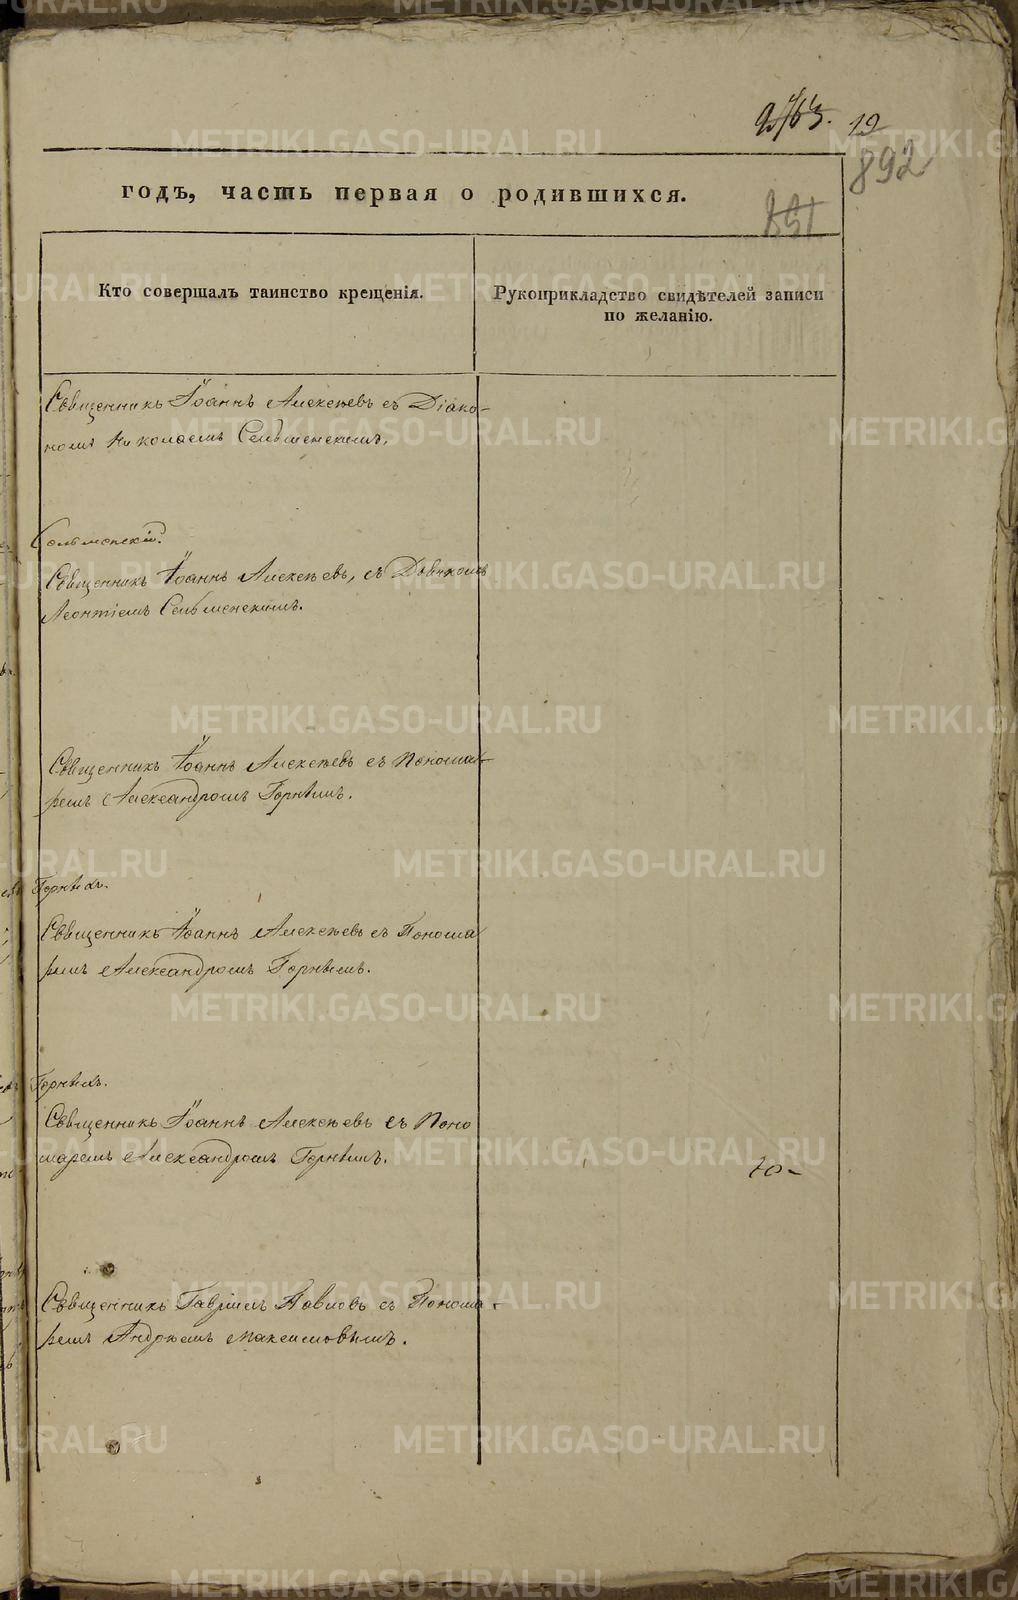 19
892
851
годъ, часть первая о родившихся.
Кто совершалъ таинство крещенія.
Рукоприкладство свидѣтелей записи
по желанію.
Священникъ Іоаннъ Алексѣевъ съ Діако-
номъ Николаемъ Сельменскимъ.
Сельменскій.
Священникъ Іоаннъ Алексѣевъ, съ Дьячкомъ
Леонтіемъ Сельменскимъ.
Священникъ Іоаннъ Алексѣевъ съ Понома-
ремъ Александромъ Горныхъ.
Горныхъ.
Священникъ Іоаннъ Алексѣевъ съ Понома
ремъ Александромъ Горнымъ.
Горныхъ.
Священникъ Іоаннъ Алексѣевъ съ Поно
маремъ Александромъ Горнымъ.
Священникъ Гавріилъ Павловъ съ Понома-
ремъ Андреемъ Максимовымъ.
METRIKI.GASO-URAL.RU